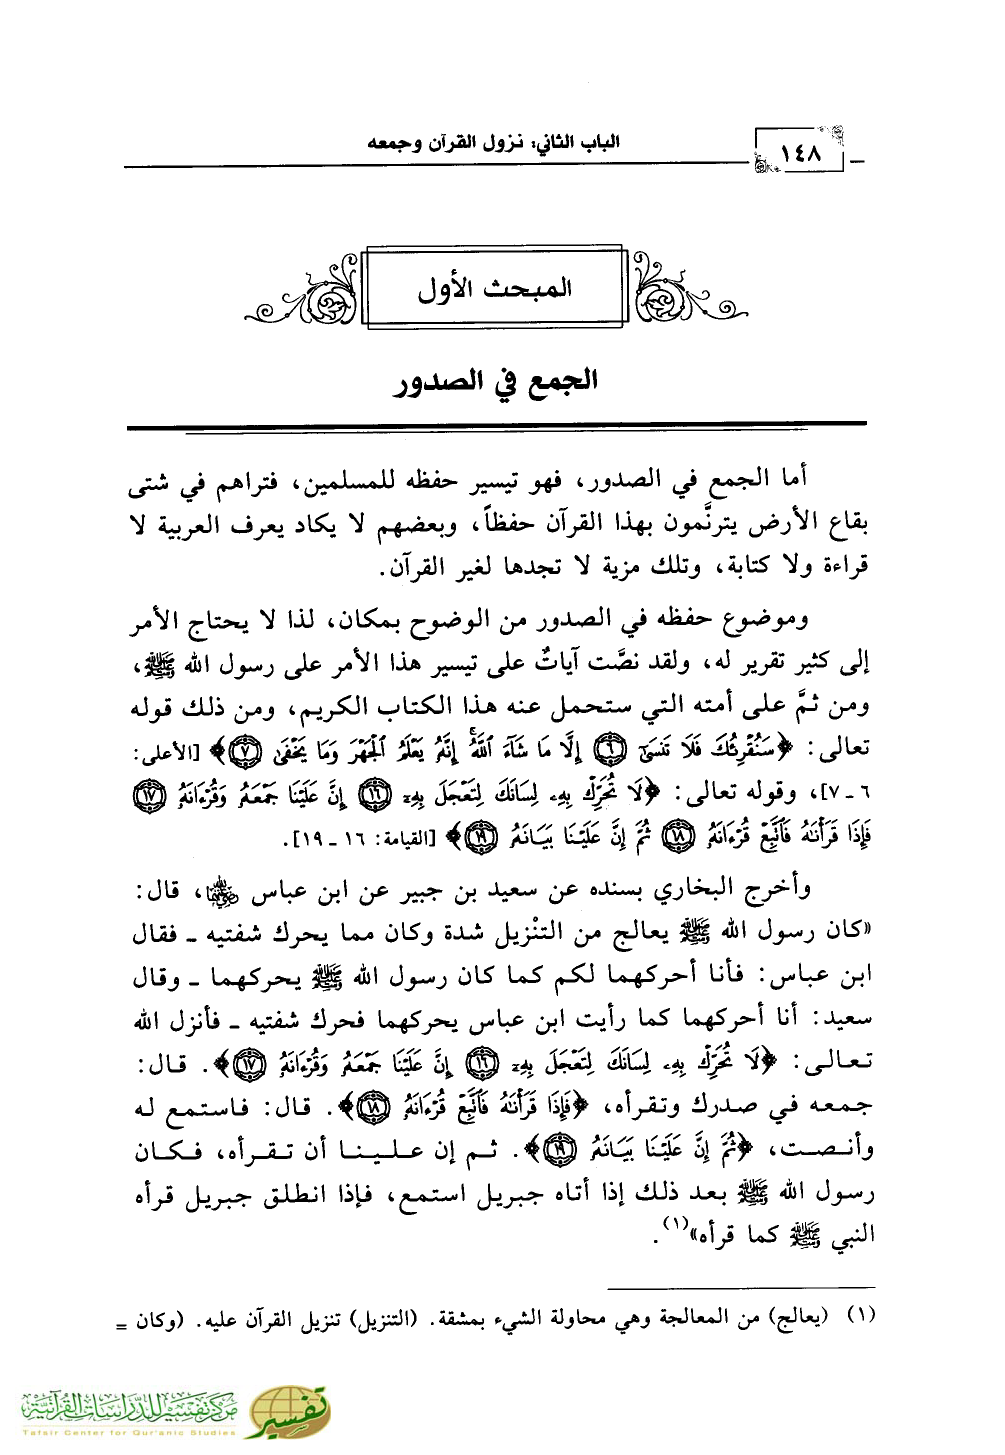 ١٤٨
الباب الثاني: نزول القرآن وجمعه
المبحث الأول
الجمع في الصدور
أما الجمع في الصدور، فهو تيسير حفظه للمسلمين، فتراهم في شتى
بقاع الأرض يترنَّمون بهذا القرآن حفظاً، وبعضهم لا يكاد يعرف العربية لا
قراءة ولا كتابة، وتلك مزية لا تجدها لغير القرآن.
وموضوع حفظه في الصدور من الوضوح بمكان، لذا لا يحتاج الأمر
إلى كثير تقرير له، ولقد نصَّت آياتٌ على تيسير هذا الأمر على رسول الله ﷺ،
ومن ثمَّ على أمته التي ستحمل عنه هذا الكتاب الكريم، ومن ذلك قوله
تعالى: ﴿سَنُقْرِئُكَ فَلَا تَنسَىٰٓ ۝٦ إِلَّا مَا شَآءَ ٱللَّهُ ۚ إِنَّهُۥ يَعْلَمُ ٱلْجَهْرَ وَمَا يَخْفَىٰ ۝٧﴾ [الأعلى:
٦ ـ ٧]، وقوله تعالى: ﴿لَا تُحَرِّكْ بِهِۦ لِسَانَكَ لِتَعْجَلَ بِهِۦٓ ۝١٦ إِنَّ عَلَيْنَا جَمْعَهُۥ وَقُرْءَانَهُۥ ۝١٧
فَإِذَا قَرَأْنَٰهُ فَٱتَّبِعْ قُرْءَانَهُۥ ۝١٨ ثُمَّ إِنَّ عَلَيْنَا بَيَانَهُۥ ۝١٩﴾ [القيامة: ١٦ ـ ١٩].
وأخرج البخاري بسنده عن سعيد بن جبير عن ابن عباس رضي الله عنهما، قال:
«كان رسول الله ﷺ يعالج من التنْزيل شدة وكان مما يحرك شفتيه ـ فقال
ابن عباس: فأنا أحركهما لكم كما كان رسول الله ﷺ يحركهما ـ وقال
سعيد: أنا أحركهما كما رأيت ابن عباس يحركهما فحرك شفتيه ـ فأنزل الله
تعالى: ﴿لَا تُحَرِّكْ بِهِۦ لِسَانَكَ لِتَعْجَلَ بِهِۦٓ ۝١٦ إِنَّ عَلَيْنَا جَمْعَهُۥ وَقُرْءَانَهُۥ ۝١٧﴾. قال:
جمعه في صدرك وتقرأه، ﴿فَإِذَا قَرَأْنَٰهُ فَٱتَّبِعْ قُرْءَانَهُۥ ۝١٨﴾. قال: فاستمع له
وأنصت، ﴿ثُمَّ إِنَّ عَلَيْنَا بَيَانَهُۥ ۝١٩﴾. ثم إن علينا أن تقرأه، فكان
رسول الله ﷺ بعد ذلك إذا أتاه جبريل استمع، فإذا انطلق جبريل قرأه
النبي ﷺ كما قرأه»(١).
(١) (يعالج) من المعالجة وهي محاولة الشيء بمشقة. (التنزيل) تنزيل القرآن عليه. (وكان =
مركز تفسير للدراسات القرآنية
Tafsir Center for Qur'anic Studies
تفسير